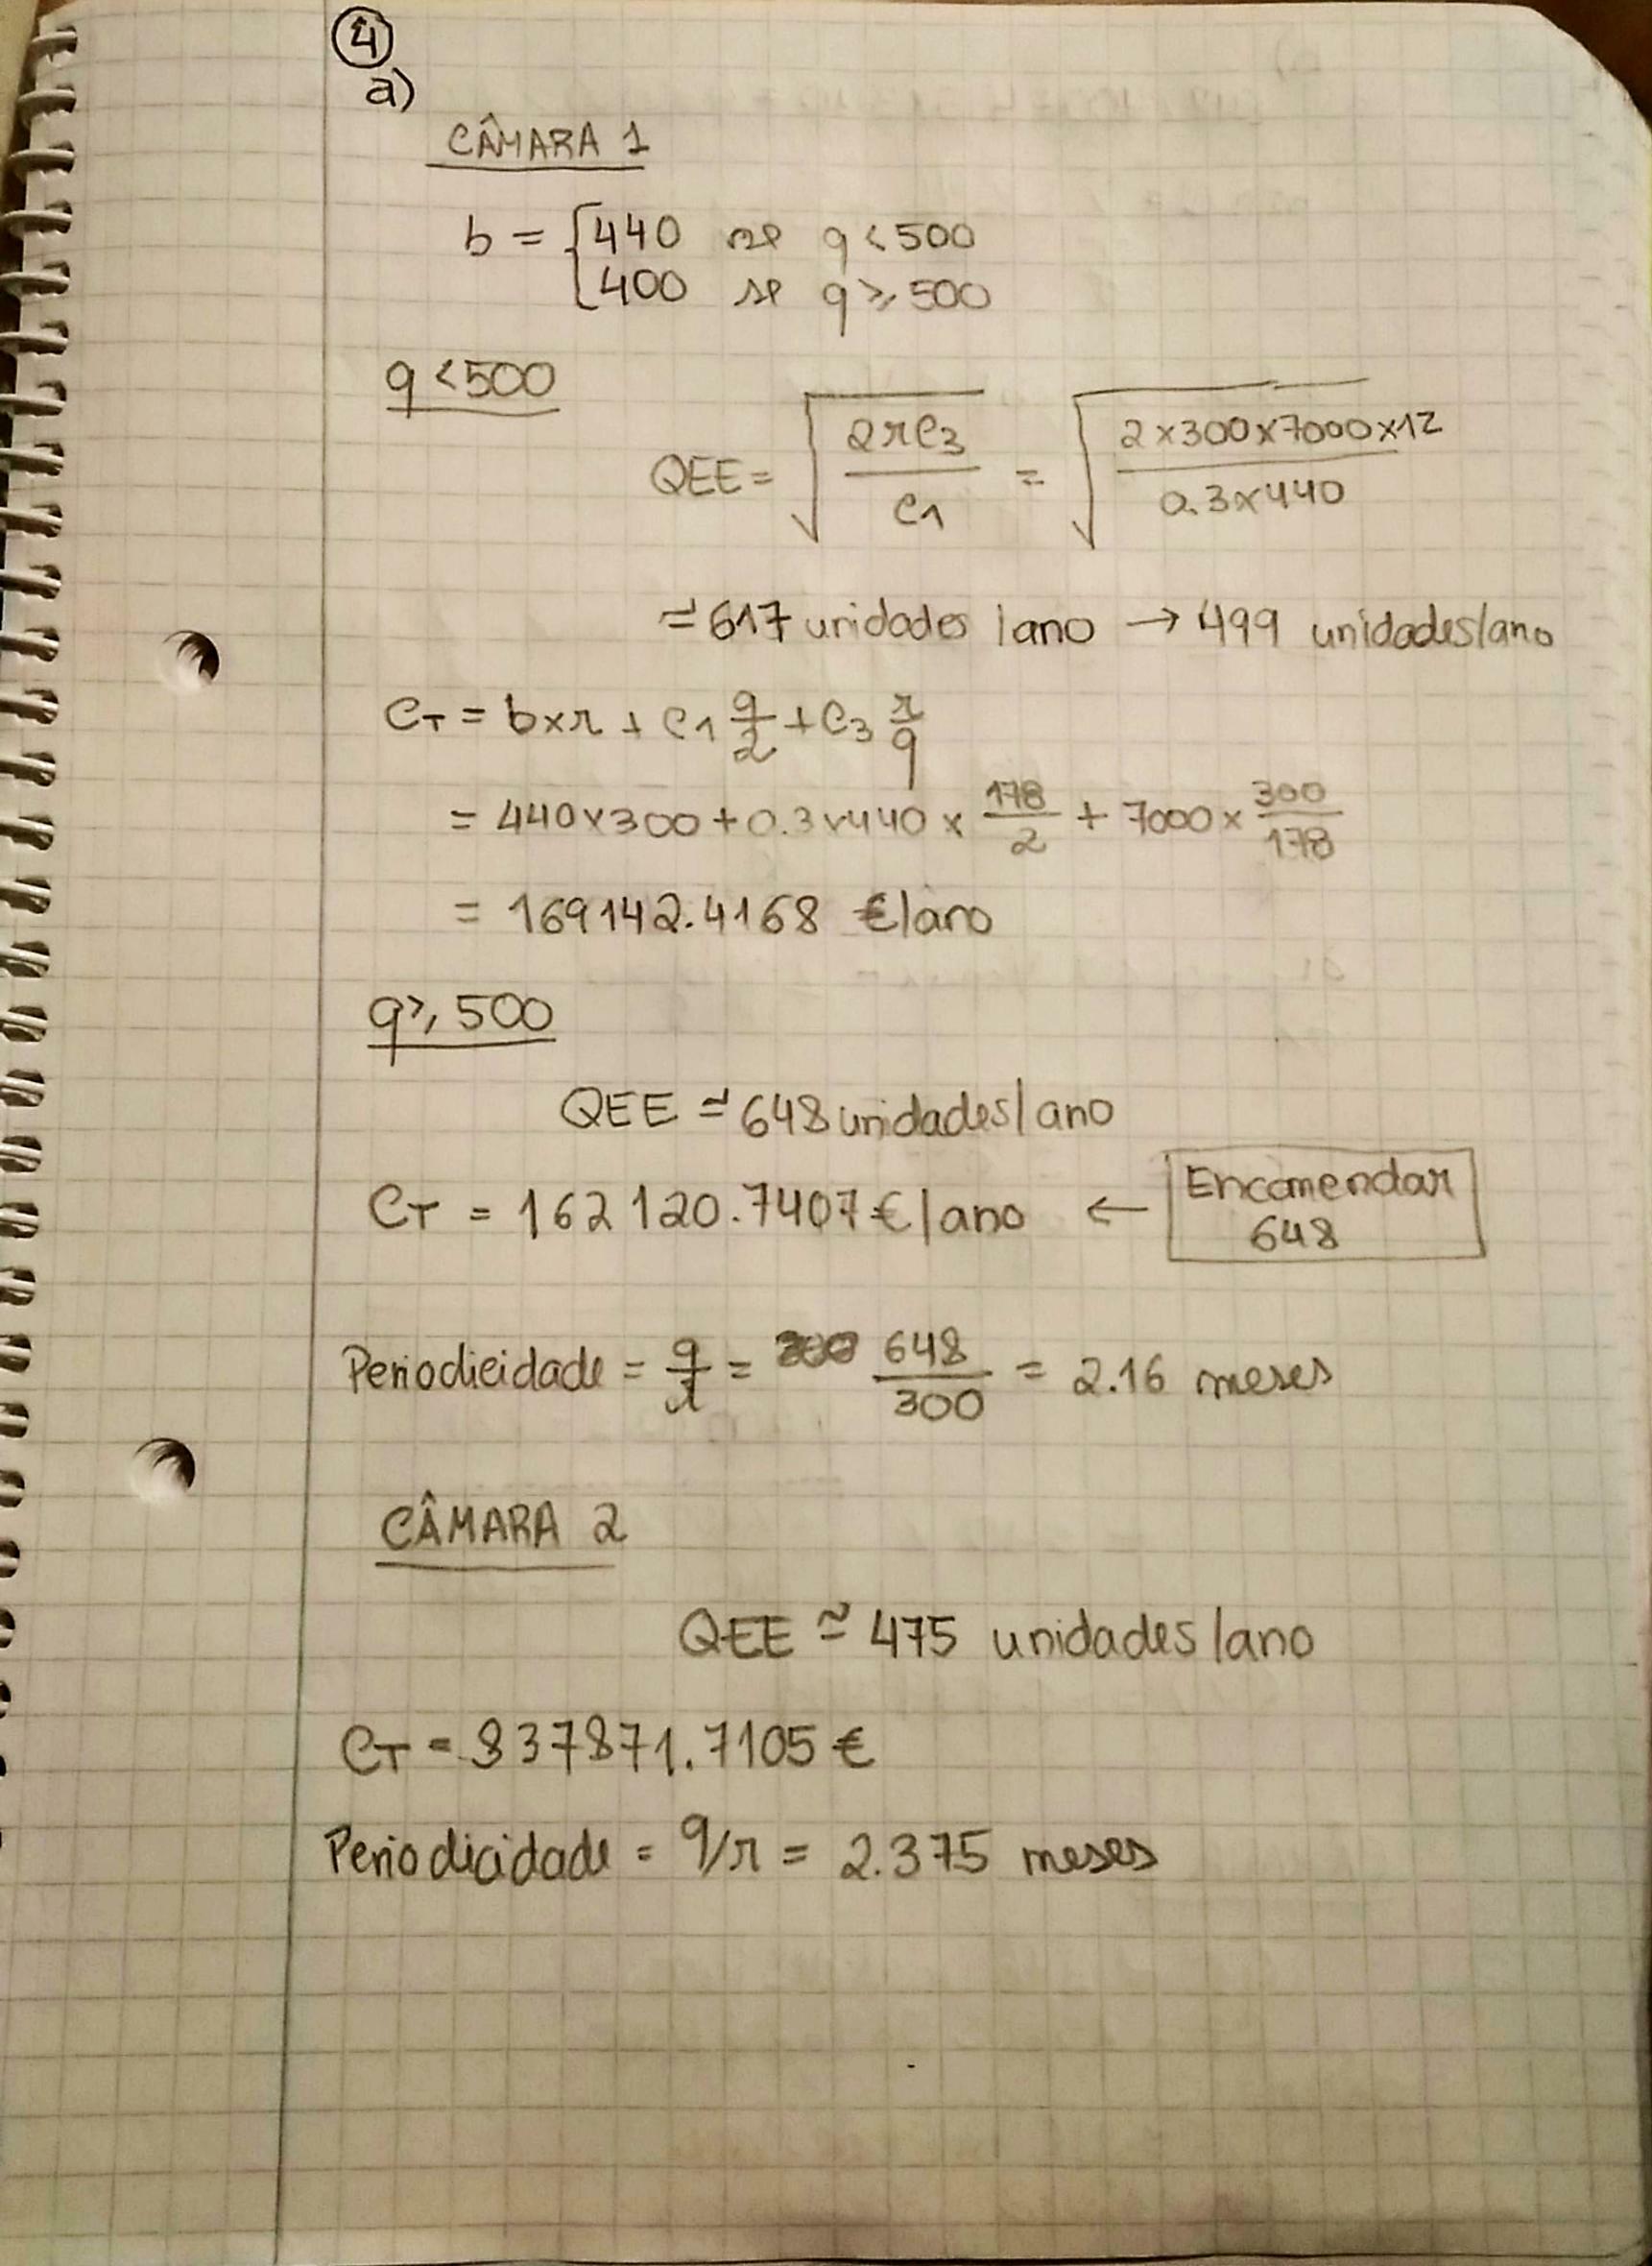 4
a)
CÂMARA 1
b = { 440 se q < 500
400 se q ⩾ 500
q < 500
QEE = √(2rC3 / C1) = √(2×300×7000×12 / 0.3×440)
≃ 617 unidades/ano → 499 unidades/ano
CT = b×r + C1 q/2 + C3 r/q
= 440×300 + 0.3×440 × 178/2 + 7000 × 300/178
= 169142.4168 €/ano
q ⩾ 500
QEE ≃ 648 unidades/ano
CT = 162120.7407 €/ano ← Encomendar
648
Periodicidade = q/r = 648/300 = 2.16 meses
CÂMARA 2
QEE ≅ 475 unidades/ano
CT = 837871.7105 €
Periodicidade = q/r = 2.375 meses